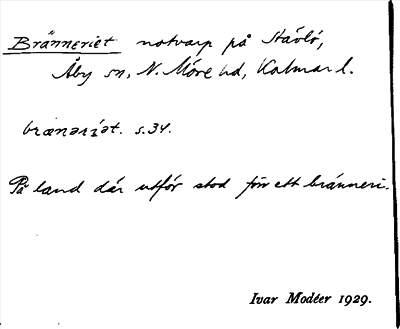 Bränneriet notvarp på Stävlö,
Åby sn, N. Möre hd, Kalmar l.
brænəríət. s. 34.
På land där utför stod förr ett bränneri.
Ivar Modéer 1929.